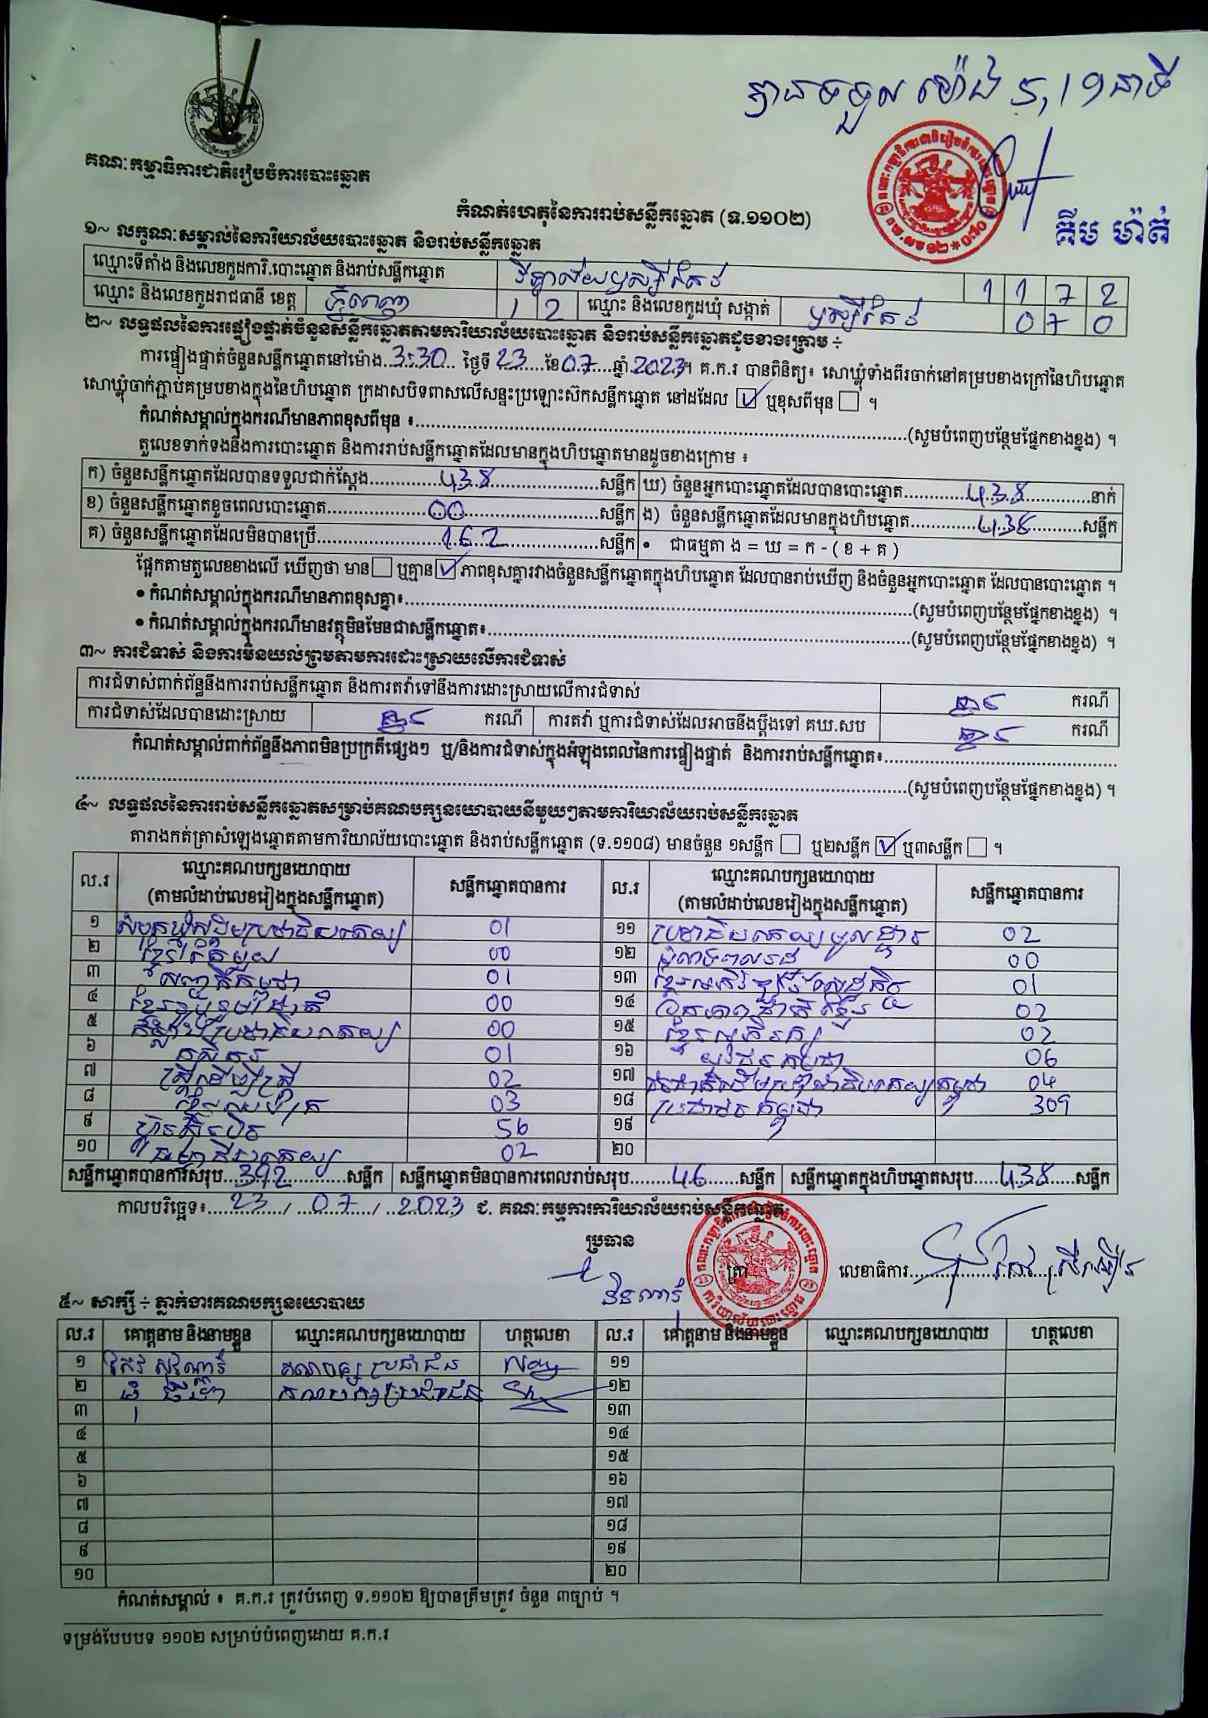 បានទទួល ម៉ោង 5,19 នាទី
គណៈកម្មាធិការជាតិរៀបចំការបោះឆ្នោត
គឹម ម៉ាត់
កំណត់ហេតុនៃការរាប់សន្លឹកឆ្នោត (ទ.១១០២)
១~ លក្ខណៈសម្គាល់នៃការិយាល័យបោះឆ្នោត និងរាប់សន្លឹកឆ្នោត
ឈ្មោះទីតាំង និងលេខកូដការិ.បោះឆ្នោត និងរាប់សន្លឹកឆ្នោត វិទ្យាល័យឫស្សីកែវ 1 1 7 2
ឈ្មោះ និងលេខកូដរាជធានី ខេត្ត ភ្នំពេញ 1 2 ឈ្មោះ និងលេខកូដឃុំ សង្កាត់ ឫស្សីកែវ 0 7 0
២~ លទ្ធផលនៃការផ្ទៀងផ្ទាត់ចំនួនសន្លឹកឆ្នោតតាមការិយាល័យបោះឆ្នោត និងរាប់សន្លឹកឆ្នោតដូចខាងក្រោម ÷
ការផ្ទៀងផ្ទាត់ចំនួនសន្លឹកឆ្នោតនៅម៉ោង.3:30... ថ្ងៃទី 23.....ខែ07....ឆ្នាំ.2023។ គ.ក.រ បានពិនិត្យ៖ សោឃ្លុំទាំងពីរចាក់នៅគម្របខាងក្រៅនៃហិបឆ្នោត
សោឃ្លុំចាក់ភ្ជាប់គម្របខាងក្នុងនៃហិបឆ្នោត ក្រដាសបិទពាសលើសន្ទះប្រឡោះស៊កសន្លឹកឆ្នោត នៅដដែល ☑ ឬខុសពីមុន ☐ ។
កំណត់សម្គាល់ក្នុងករណីមានភាពខុសពីមុន ៖......(សូមបំពេញបន្ថែមផ្នែកខាងខ្នង) ។
តួលេខទាក់ទងនឹងការបោះឆ្នោត និងការរាប់សន្លឹកឆ្នោតដែលមានក្នុងហិបឆ្នោតមានដូចខាងក្រោម ៖
ក) ចំនួនសន្លឹកឆ្នោតដែលបានទទួលជាក់ស្តែង............438............សន្លឹក ឃ) ចំនួនអ្នកបោះឆ្នោតដែលបានបោះឆ្នោត.........438.........នាក់
ខ) ចំនួនសន្លឹកឆ្នោតខូចពេលបោះឆ្នោត............00............សន្លឹក ង) ចំនួនសន្លឹកឆ្នោតដែលមានក្នុងហិបឆ្នោត.........438.........សន្លឹក
គ) ចំនួនសន្លឹកឆ្នោតដែលមិនបានប្រើ............162............សន្លឹក • ជាធម្មតា ង = ឃ = ក - ( ខ + គ )
ផ្អែកតាមតួលេខខាងលើ ឃើញថា មាន ☐ ឬគ្មាន ☑ ភាពខុសគ្នារវាងចំនួនសន្លឹកឆ្នោតក្នុងហិបឆ្នោត ដែលបានរាប់ឃើញ និងចំនួនអ្នកបោះឆ្នោត ដែលបានបោះឆ្នោត ។
• កំណត់សម្គាល់ក្នុងករណីមានភាពខុសគ្នា៖......(សូមបំពេញបន្ថែមផ្នែកខាងខ្នង) ។
• កំណត់សម្គាល់ក្នុងករណីមានវត្ថុមិនមែនជាសន្លឹកឆ្នោត៖......(សូមបំពេញបន្ថែមផ្នែកខាងខ្នង) ។
៣~ ការជំទាស់ និងការមិនយល់ព្រមតាមការដោះស្រាយលើការជំទាស់
ការជំទាស់ពាក់ព័ន្ធនឹងការរាប់សន្លឹកឆ្នោត និងការតវ៉ាទៅនឹងការដោះស្រាយលើការជំទាស់ គ្មាន ករណី
ការជំទាស់ដែលបានដោះស្រាយ គ្មាន ករណី ការតវ៉ា ឬការជំទាស់ដែលអាចនឹងប្តឹងទៅ គឃ.សប គ្មាន ករណី
កំណត់សម្គាល់ពាក់ព័ន្ធនឹងភាពមិនប្រក្រតីផ្សេងៗ ឬ/និងការជំទាស់ក្នុងអំឡុងពេលនៃការផ្ទៀងផ្ទាត់ និងការរាប់សន្លឹកឆ្នោត៖......
......(សូមបំពេញបន្ថែមផ្នែកខាងខ្នង) ។
៤~ លទ្ធផលនៃការរាប់សន្លឹកឆ្នោតសម្រាប់គណបក្សនយោបាយនីមួយៗតាមការិយាល័យរាប់សន្លឹកឆ្នោត
តារាងកត់ត្រាសំឡេងឆ្នោតតាមការិយាល័យបោះឆ្នោត និងរាប់សន្លឹកឆ្នោត (ទ.១១០៨) មានចំនួន ១សន្លឹក ☐ ឬ២សន្លឹក ☑ ឬ៣សន្លឹក ☐ ។
ល.រ ឈ្មោះគណបក្សនយោបាយ (តាមលំដាប់លេខរៀងក្នុងសន្លឹកឆ្នោត) សន្លឹកឆ្នោតបានការ ល.រ ឈ្មោះគណបក្សនយោបាយ (តាមលំដាប់លេខរៀងក្នុងសន្លឹកឆ្នោត) សន្លឹកឆ្នោតបានការ
១ សំបុកឃ្មុំសង្គមប្រជាធិបតេយ្យ 01 ១១ ប្រជាធិបតេយ្យមូលដ្ឋាន 02
២ ខ្មែរតែមួយ 00 ១២ ពលរដ្ឋ 00
៣ សញ្ជាតិកម្ពុជា 01 ១៣ ខ្មែរអភិវឌ្ឍន៍សេដ្ឋកិច្ច 01
៤ ខ្មែររួបរួមជាតិ 00 ១៤ ឯកភាពជាតិខ្មែរ 02
៥ កម្លាំងប្រជាធិបតេយ្យ 00 ១៥ ខ្មែរអភិរក្ស 02
៦ កសិករ 01 ១៦ យុវជនកម្ពុជា 06
៧ ស្ត្រីដើម្បីស្ត្រី 02 ១៧ 04
៨ 03 ១៨ ប្រជាជនកម្ពុជា 309
៩ ហ្វ៊ុនស៊ិនប៉ិច 56 ១៩
១០ ធម្មាធិបតេយ្យ 02 ២០
សន្លឹកឆ្នោតបានការសរុប..392......សន្លឹក សន្លឹកឆ្នោតមិនបានការពេលរាប់សរុប......46......សន្លឹក សន្លឹកឆ្នោតក្នុងហិបឆ្នោតសរុប....438....សន្លឹក
កាលបរិច្ឆេទ៖...23..../...07..../..2023 ជ. គណៈកម្មការការិយាល័យរាប់សន្លឹកឆ្នោត
ប្រធាន
ត្រា
លេខាធិការ......
៥~ សាក្សី ÷ ភ្នាក់ងារគណបក្សនយោបាយ
ល.រ គោត្តនាម និងនាមខ្លួន ឈ្មោះគណបក្សនយោបាយ ហត្ថលេខា ល.រ គោត្តនាម និងនាមខ្លួន ឈ្មោះគណបក្សនយោបាយ ហត្ថលេខា
១ កែវ សុវណ្ណារី គណបក្ស ប្រជាជន ១១
២ គណបក្សប្រជាជន ១២
៣ ១៣
៤ ១៤
៥ ១៥
៦ ១៦
៧ ១៧
៨ ១៨
៩ ១៩
១០ ២០
កំណត់សម្គាល់ ៖ គ.ក.រ ត្រូវបំពេញ ទ.១១០២ ឱ្យបានត្រឹមត្រូវ ចំនួន ៣ច្បាប់ ។
ទម្រង់បែបបទ ១១០២ សម្រាប់បំពេញដោយ គ.ក.រ